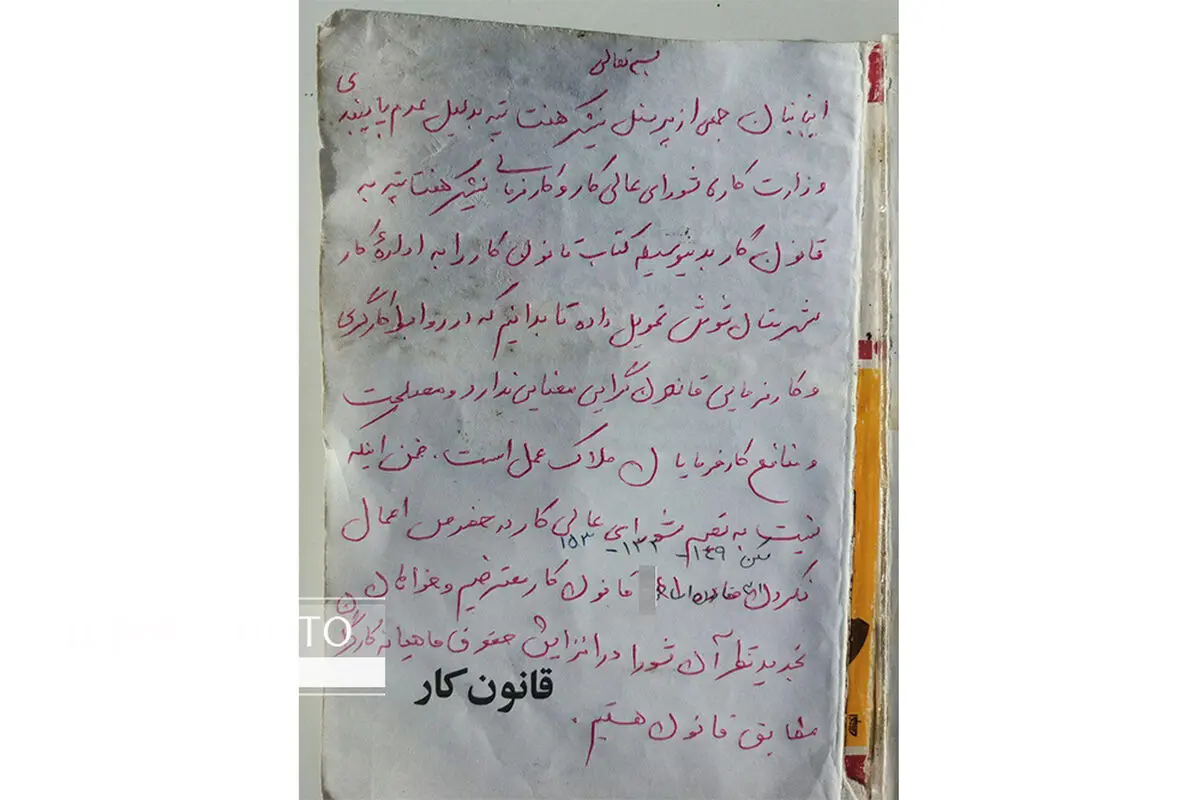 بسم تعالی
اینجانبان جمعی از پرسنل نیشکر هفت تپه بدلیل عدم پایبندی
وزارت کار و شورای عالی کار و کارفرمایی نیشکر هفت تپه به
قانون کار بدینوسیله کتاب قانون کار را به ادارهٔ کار
شهرستان شوش تحویل داده تا بدانیم که در روابط کارگری
و کارفرمایی قانون گرایی معنایی ندارد و مصلحت
و منافع کارفرمایان ملاک عمل است. ضمن اینکه
نسبت به تصمیم شورای عالی کار در خصوص اعمال
مسکن ۱۴۹ - ۱۳۳ - ۱۵۳
نکردن قانون کار معترضیم و خواهان
تجدید نظر آن شورا در افزایش حقوق ماهیانه کارگران
قانون کار
مطابق قانون هستیم.
TO